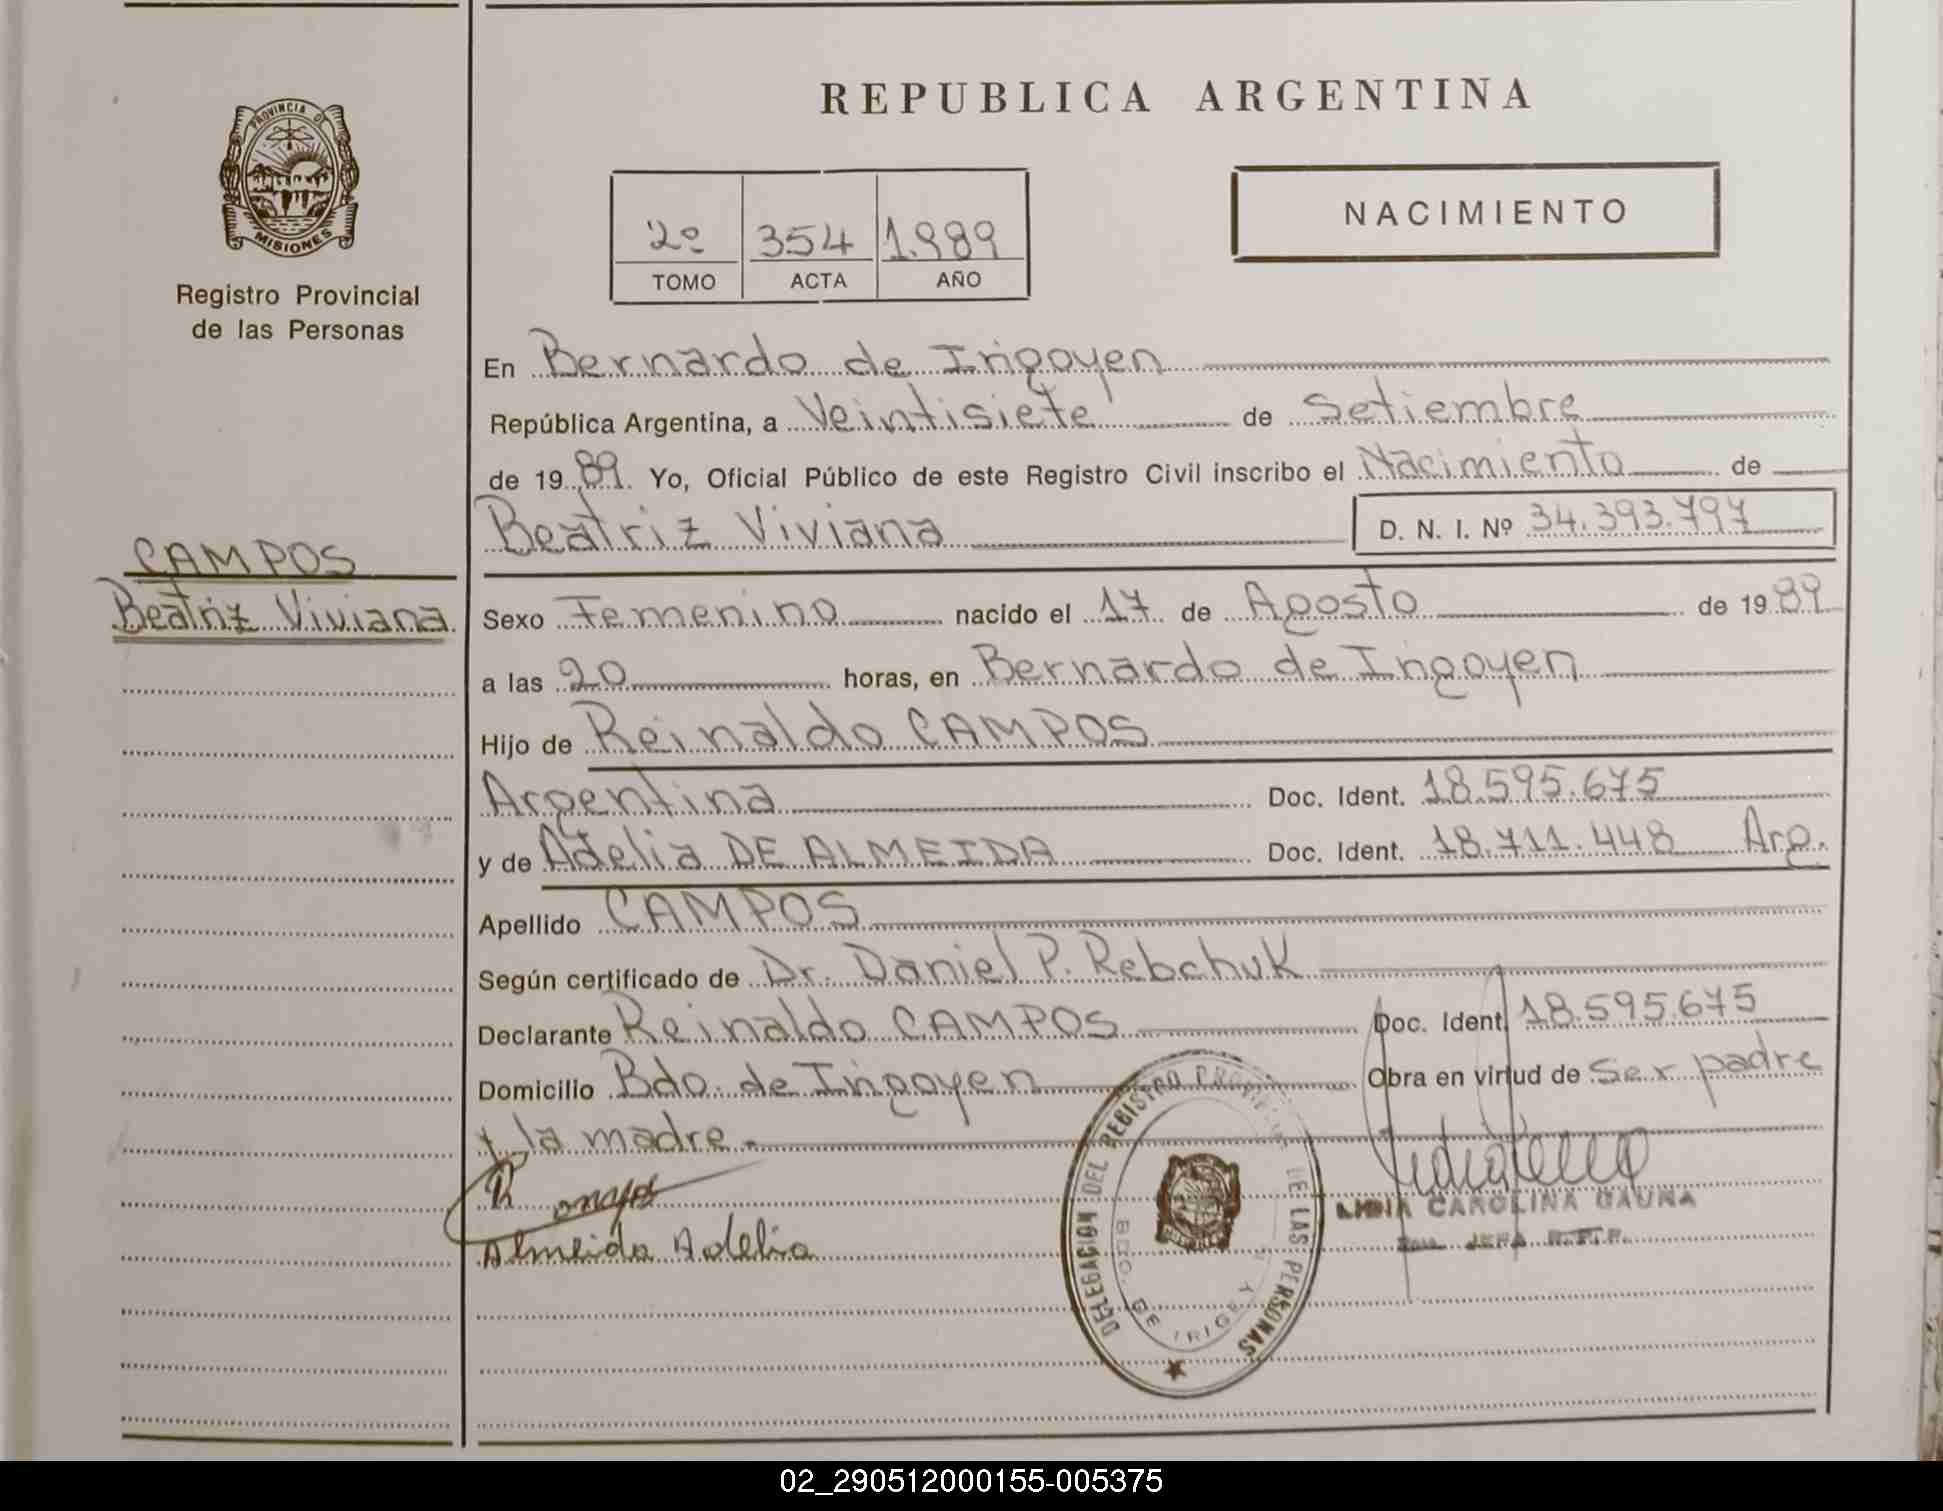 REPUBLICA ARGENTINA
PROVINCIA DE
MISIONES
Registro Provincial
de las Personas
2º 354 1.989
TOMO ACTA AÑO
NACIMIENTO
En Bernardo de Irigoyen
República Argentina, a Veintisiete de Setiembre
de 19 89. Yo, Oficial Público de este Registro Civil inscribo el Nacimiento de
Beatriz Viviana D. N. I. Nº 34.393.797
CAMPOS
Beatriz Viviana
Sexo Femenino nacido el 17 de Agosto de 19 89
a las 20 horas, en Bernardo de Irigoyen
Hijo de Reinaldo CAMPOS
Argentina Doc. Ident. 18.595.675
y de Adelia DE ALMEIDA Doc. Ident. 18.711.448 Arg.
Apellido CAMPOS
Según certificado de Dr. Daniel P. Rebchuk
Declarante Reinaldo CAMPOS Doc. Ident. 18.595.675
Domicilio Bdo. de Irigoyen Obra en virtud de Ser padre
y la madre.
Almeida Adelia
DELEGACION DEL REGISTRO PROVINCIAL DE LAS PERSONAS
BDO. DE IRIGOYEN
CAROLINA GAUNA
JEFA R.P.P.
02_290512000155-005375